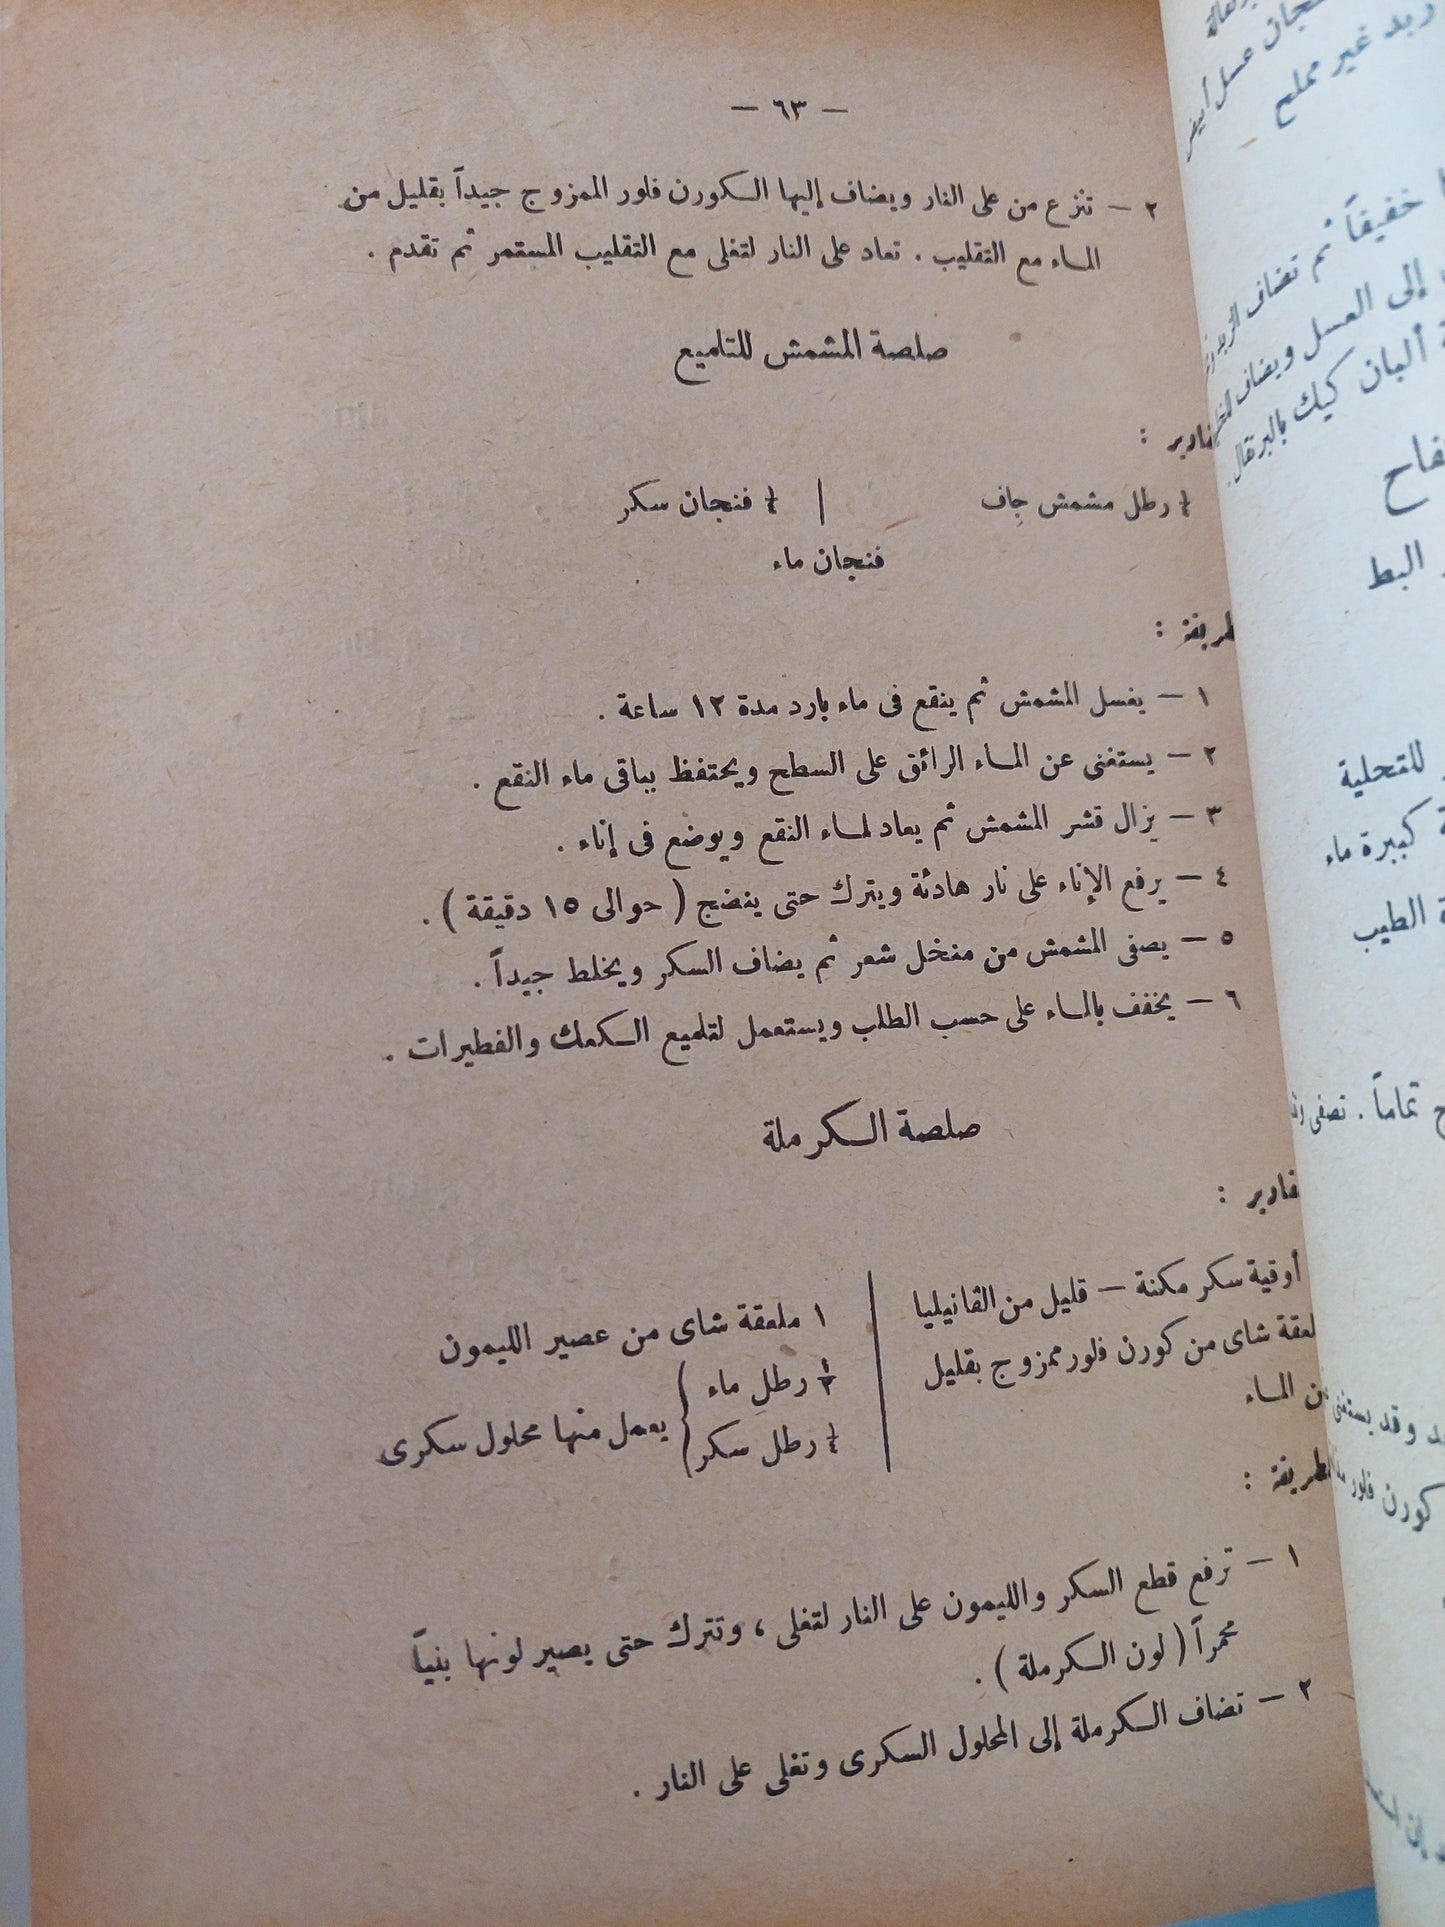 — ٦٣ —
٢ — تنزع من على النار ويضاف إليها السكورن فلور الممزوج جيداً بقليل من
الماء مع التقليب . تعاد على النار لتغلى مع التقليب المستمر ثم تقدم .
صلصة المشمش للتلميع
¼ رطل مشمش جاف | ¼ فنجان سكر
فنجان ماء
١ — يغسل المشمش ثم ينقع فى ماء بارد مدة ١٢ ساعة .
٢ — يستغنى عن الماء الرائق على السطح ويحتفظ بباقى ماء النقع .
٣ — يزال قشر المشمش ثم يعاد لماء النقع ويوضع فى إناء .
٤ — يرفع الإناء على نار هادئة ويترك حتى ينضج ( حوالى ١٥ دقيقة ) .
٥ — يصفى المشمش من منخل شعر ثم يضاف السكر ويخلط جيداً .
٦ — يخفف بالماء على حسب الطلب ويستعمل لتلميع السكعك والفطيرات .
صلصة السكرملة
أوقية سكر مكنة — قليل من الڤانيليا
شاى من كورن فلور ممزوج بقليل
الماء
١ ملعقة شاى من عصير الليمون
½ رطل ماء
¼ رطل سكر
يعمل منها محلول سكرى
١ — ترفع قطع السكر والليمون على النار لتغلى ، وتترك حتى يصير لونها بنياً
محمراً ( لون السكرملة ) .
٢ — تضاف السكرملة إلى المحلول السكرى وتغلى على النار .
عسل
زبد غير مملح
خفيفاً ثم تضاف
إلى العسل ويضاف
ألبان كيك بالبرتقال .
البط
للتحلية
كبيرة ماء
الطيب
تماماً . تصفى
وقد يستغنى
كورن فلور